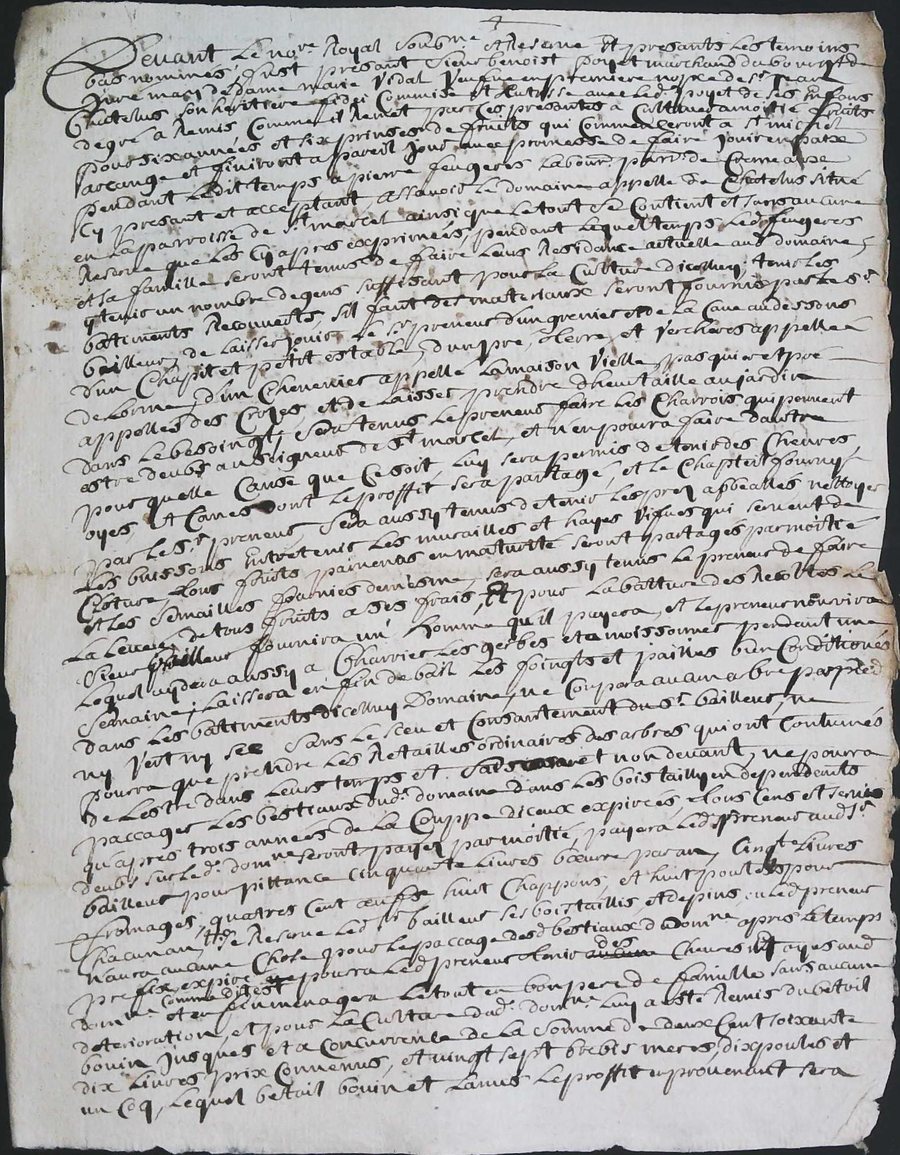 Devant Le no.re Royal Soubne et Reserve Et presants les temoins
bas nommes, fust presant Sieur benoist poyet marchand du bourg de
Jure mary de dame marie Vidal Veufve en premiere nopce de St Jean
Chatelus son heritiere
de gre a Remis Comme il Remet par Ces presantes a Culture a moitie fruits
pour six annees et six prinses de fruits qui Commenceront a St michel
arcange et finiront a pareil Jour avec promesse de faire Jouir en paix
pendant ledit temps a pierre feugeres Labour. par.de Cremeaux
Cy presant et acceptant, assavoir Le domaine appelle de Chatelus situé
en La parroisse de St marcel ainsi que Le tout se Contient et sans aucune
Reserve que les Cy apres exprimées, pendant Lequel temps Led. feugeres
et sa famille seront tenus de faire Leurs Residance actuelle aud. domaine,
y tenir un nombre de gens suffisant pour La Culture dicelluy, tenir les
bâtiments Recouverts, sil faut des materiaux seront fournis par Les.r
bailleur, de laisser Jouir Le sr preneur d'un grenier et de la Cave au dessous
d'un Chapit et petit estable, d'un pré, et Verchere appellée
de Lorme, d'un Chenevier appelle La maison Vielle, pasquier et pré
appelles des Croses, et de Laisser prendre d'heurtaille au jardin
dans Le besoingt, Sera tenus Le preneur faire Les Charrois qui peuvent
estre deubs au Seigneur de St marcel, et n'en pourra faire dautre
pour quelle Cause que Ce soit, Luy sera permis de tenir des Chevres
oyes, et Canes dont le proffit sera partagé, et le Chapteil fourny
par Les.r preneur, Sera aussy tenus de tenir les prez abbealles nettoyer
Les buissons Entretenir Les murailles et hayes Vifves qui servent de
Cloture, tous fruits parvenus en maturitté seront partages par moitié
et les Semailles fournies de mesme, sera aussy tenus Le preneur de faire
La Levee de tous fruits a ses frais, Et pour La batture des Recoltes Le
Sieur bailleur fournira un homme qu'il payera, et le preneur nourrira
Lequel aydera aussy a Charrier Les gerbes et a moissonner pendant une
Semaine, Laissera en fin de bail Les foingts et pailles bien Conditionés
dans Les bâtiments dicelluy Domaine, ne Coupara aucun arbre par pied
ny Vert ny sec sans Le sceu et Consantement du Sr. bailleur, ne
pourra que prendre Les Retailles ordinaires des arbres qui ont Coutumés
de Lestre dans Leurs temps et saison et non devant, ne pourra
paccager Les bestiaux dud. domaine dans Les bois tailly en dependents
qu'apres trois années de La Couppe diceux expirées, tous Cens et servis
deubs sur Led. dom.ne seront payer par moitié, payera Led. preneur aud. sr
bailleur pour pittance Cinquante Livres bœurre par an, Cingt Livres
fromages, quatres Cent œufs huit Chappons, et huit poulets pour
Chacun an, Se Reserve Led. Sr bailleur ses bois taillis et de pins, ou Led. preneur
n'aura aucune Chose pour le paccage desd. bestiaux dud. Domne apres Le temps
prefix expiré, ne pourra Led. preneur tenir des Chevres et oyes aud.
dom.ne Comme dit est et en fin menagera Le tout en bon pere de famille sans aucune
deterioration, et pour La Culture dud. dom.ne Luy a esté Remis du bétail
bovin Jusques et a Concurrence de La Somme de deux Cent soixante
dix Livres prix Convenus, et vingt sept brebis meres, dix poules et
un Coq, Lequel bétail bovin et Lanus Le proffit en provenant sera